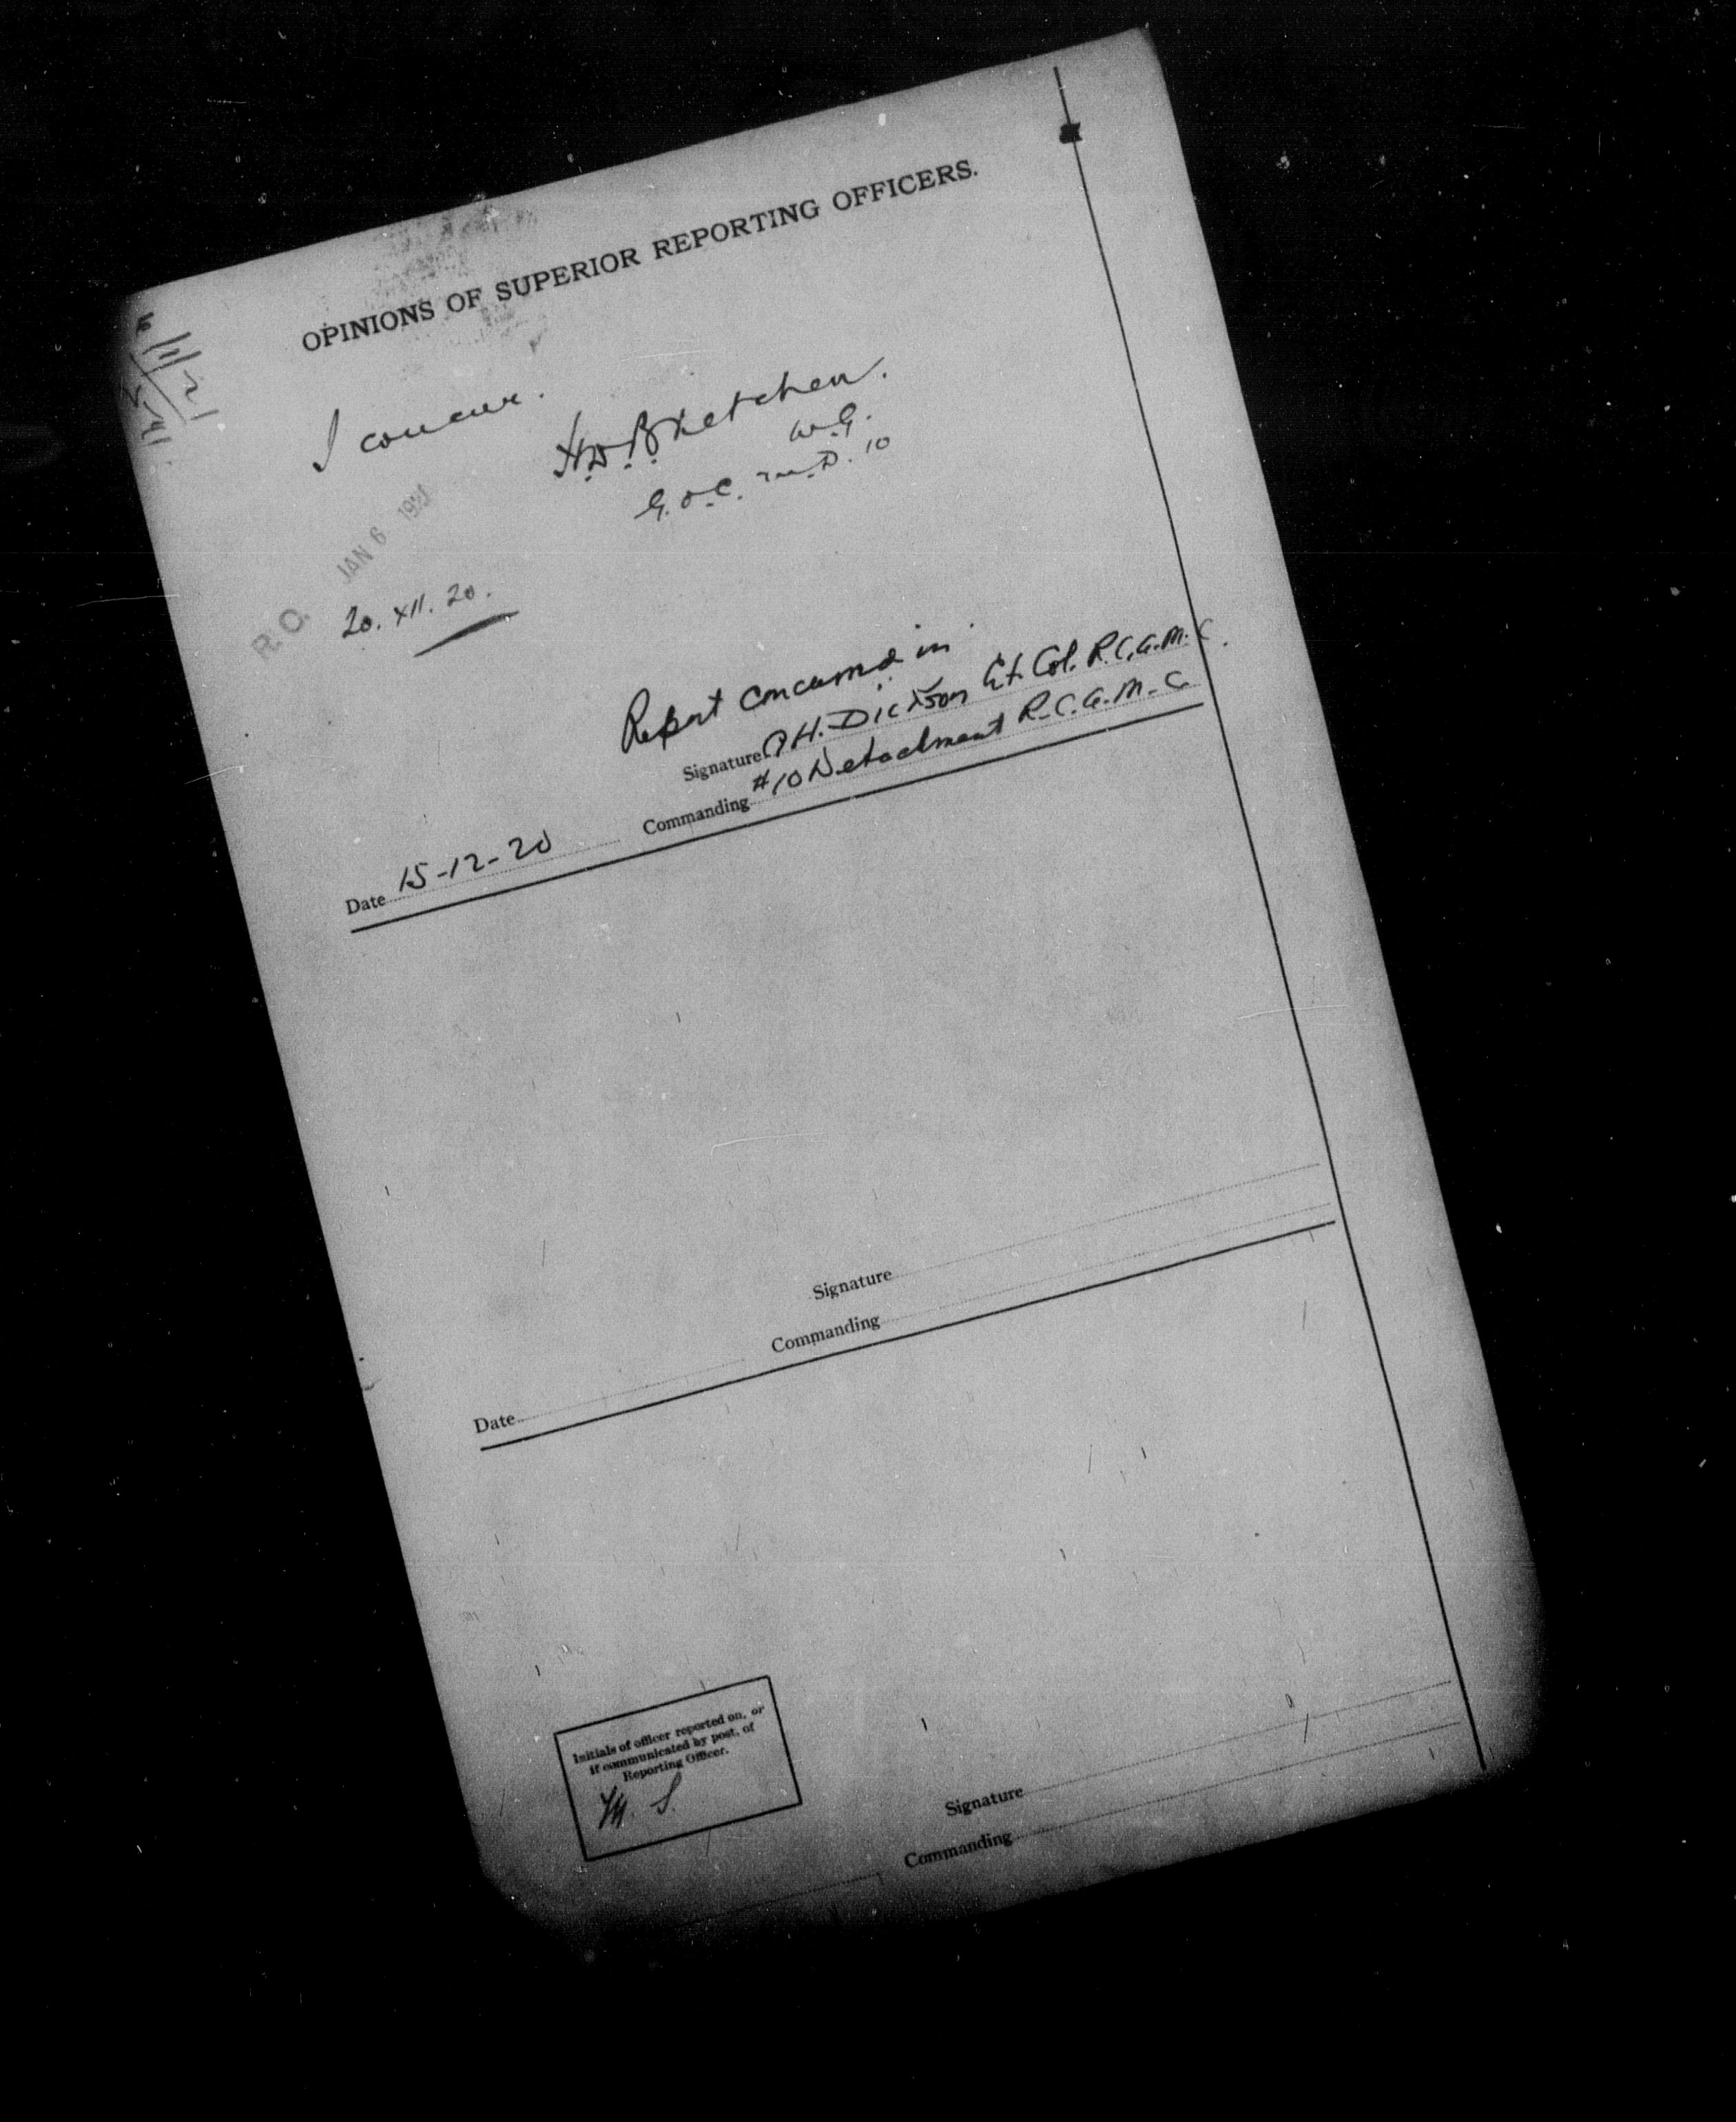 OPINIONS OF SUPERIOR REPORTING OFFICERS.
I concur.
H.D.B. Ketchen.
G.O.C. M.D. 10
R.O. JAN 6
20. XII. 20.
Report concurred in
Signature H. Dickson Lt. Col. R.C.A.M.C.
Commanding #10 Detachment R.C.A.M.C.
Date 15-12-20
Signature
Commanding
Date
Initials of officer reported on, or
if communicated by post, of
Reporting Officer.
M. S.
Signature
Commanding